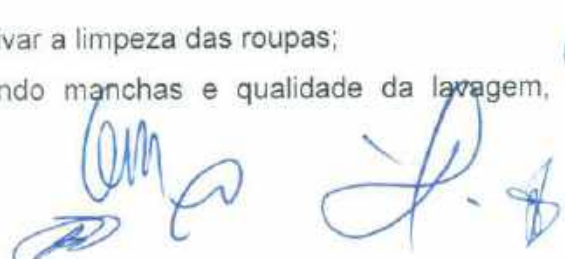 ivar a limpeza das roupas;
ndo manchas e qualidade da lavagem,